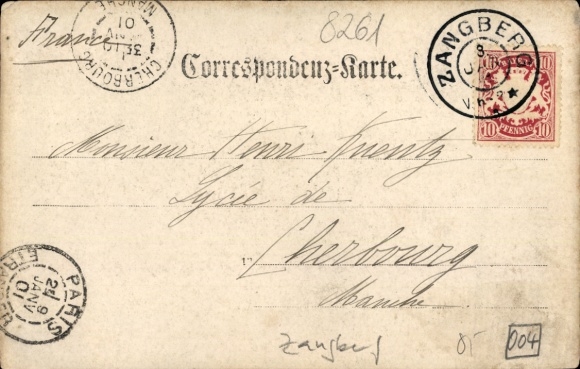 France
CHERBOURG
MANCHE
01
8261
Correspondenz=Karte.
ZANGBERG
10 10
10 PFENNIG 10
Monsieur Henri Kuentz
Lycée de
Cherbourg
Manche
PARIS
ETRANGER
9
JANV
01
Zangberg
004